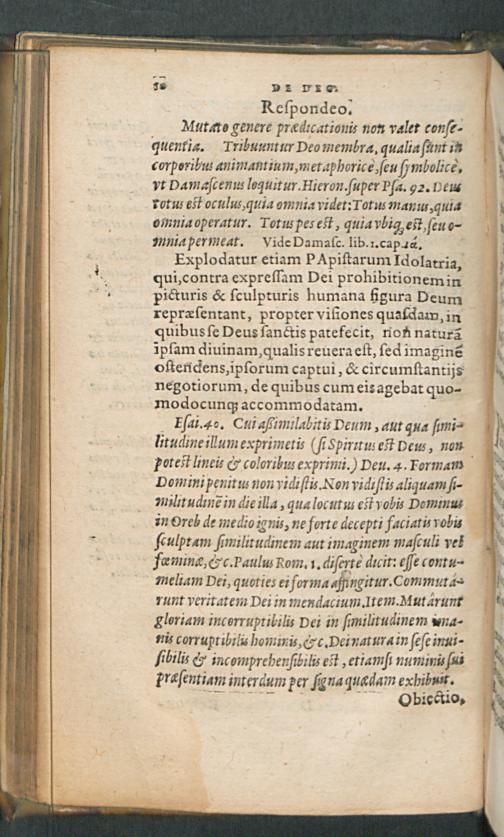 DE DEO.
Respondeo.
Mutato genere prædicationis non valet conse-
quentia. Tribuuntur Deo membra, qualia sunt in
corporibus animantium, metaphoricè, seu symbolicè,
vt Damascenus loquitur. Hieron. super Psa. 92. Deus
totus est oculus, quia omnia videt: Totus manus, quia
omnia operatur. Totus pes est, quia vbiq; est, seu o-
mnia permeat. Vide Damasc. lib. 1. cap.
Explodatur etiam PApistarum Idolatria,
qui, contra expressam Dei prohibitionem in
picturis & sculpturis humana figura Deum
repræsentant, propter visiones quasdam, in
quibus se Deus sanctis patefecit, non naturā
ipsam diuinam, qualis reuera est, sed imaginē
ostendens, ipsorum captui, & circumstantijs
negotiorum, de quibus cum eis agebat quo-
modocunq; accommodatam.
Esai. 40. Cui assimilabitis Deum, aut qua simi-
litudine illum exprimetis (si Spiritus est Deus, non
potest lineis & coloribus exprimi.) Deu. 4. Formam
Domini penitus non vidistis. Non vidistis aliquam si-
militudinē in die illa, qua locutus est vobis Dominus
in Oreb de medio ignis, ne forte decepti faciatis vobis
sculptam similitudinem aut imaginem masculi vel
fœminæ, &c. Paulus Rom. 1. disertè dicit: esse contu-
meliam Dei, quoties ei forma affingitur. Commutá-
runt veritatem Dei in mendacium. Item. Mutârunt
gloriam incorruptibilis Dei in similitudinem ima-
nis corruptibilis hominis, &c. Dei natura in sese inui-
sibilis & incomprehensibilis est, etiamsi numinis sui
præsentiam interdum per signa quædam exhibuit.
Obiectio,